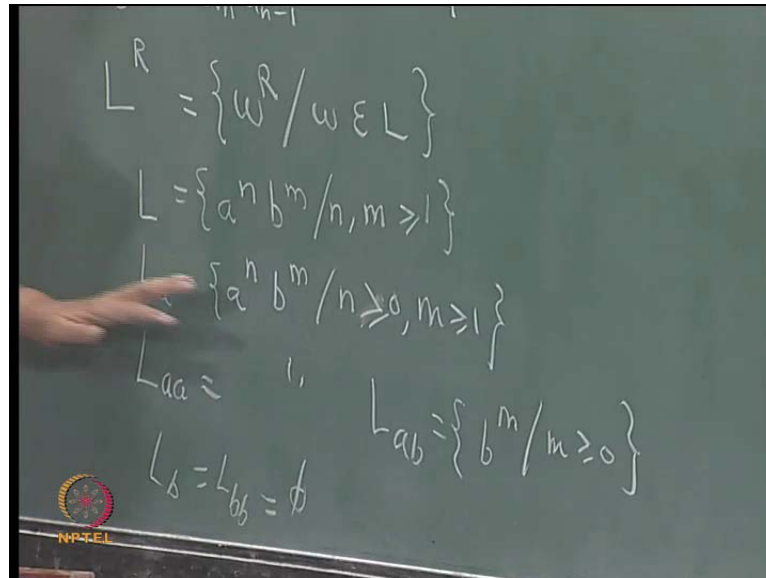 L^R = {w^R / w ε L}
L = {a^n b^m / n, m ≥ 1}
{a^n b^m / n ≥ 0, m ≥ 1}
L_aa = "
L_ab = {b^m / m ≥ 0}
L_b = L_bb = ϕ
NPTEL